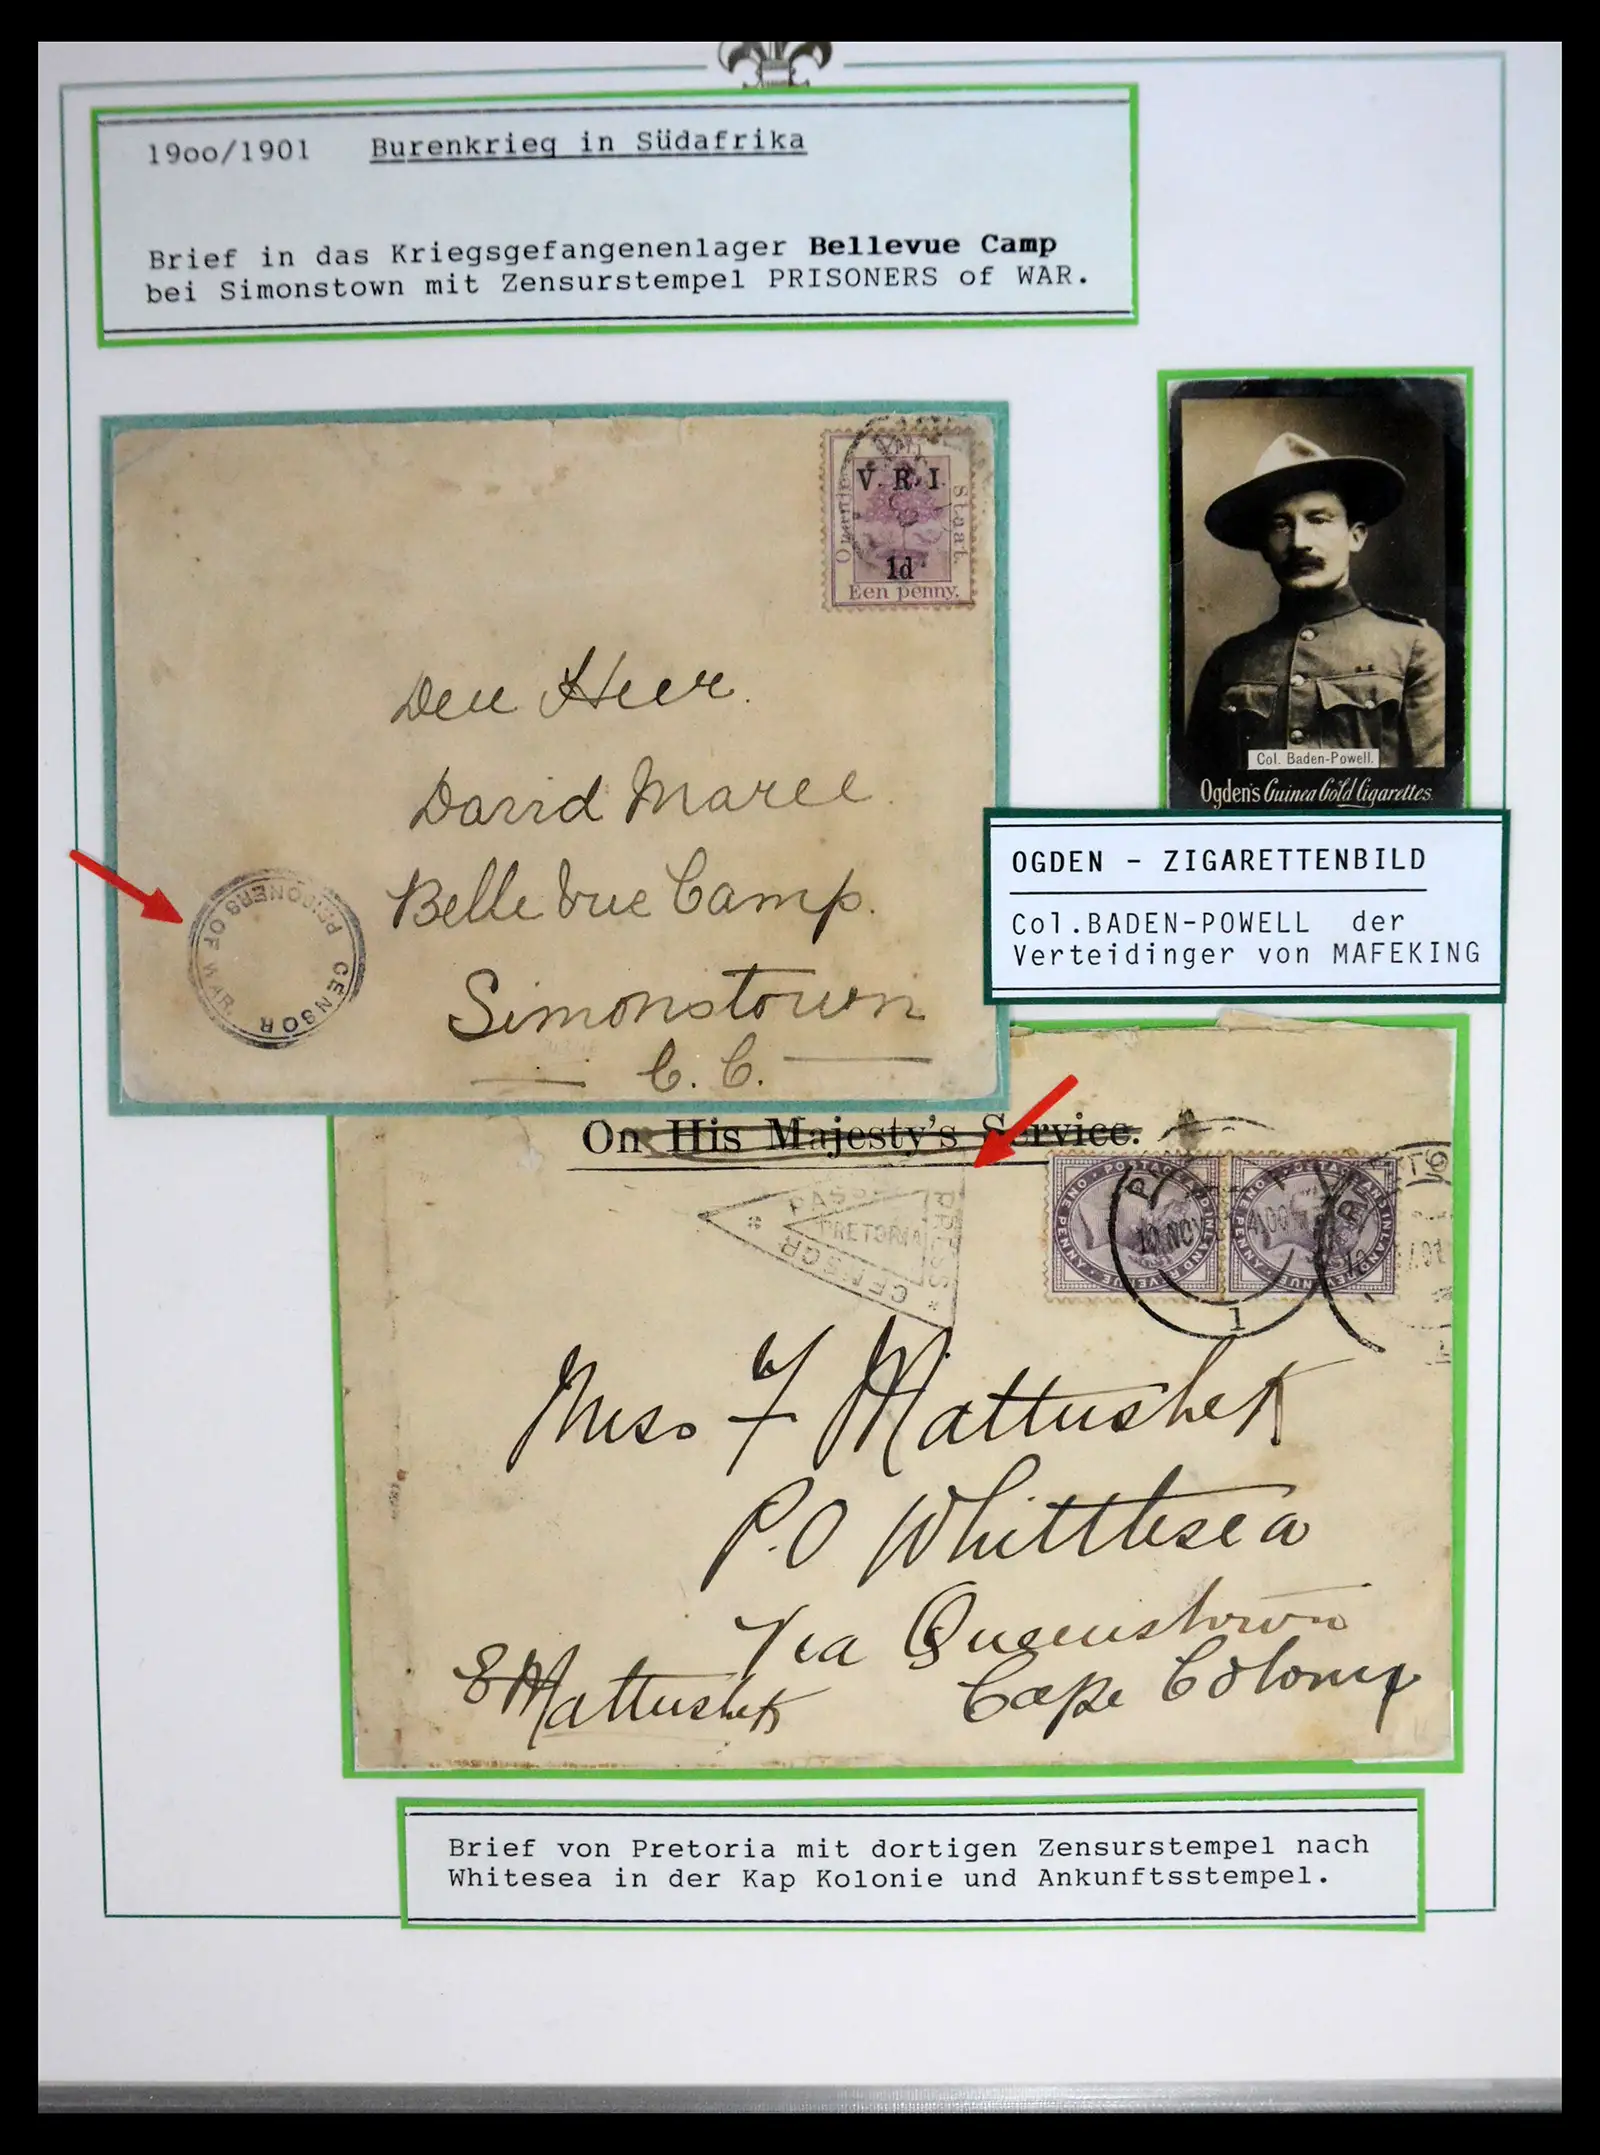 19oo/1901 Burenkrieg in Südafrika
Brief in das Kriegsgefangenenlager Bellevue Camp
bei Simonstown mit Zensurstempel PRISONERS of WAR.
V. R. I.
Staat.
1d
Een penny.
Den Heer.
David Maree
Belle Vue Camp.
Simonstown
C. C.
PRISONERS OF WAR.
CENSOR
Col. Baden-Powell.
Ogden's Guinea Gold Cigarettes.
OGDEN - ZIGARETTENBILD
Col.BADEN-POWELL der
Verteidinger von MAFEKING
On His Majesty's Service.
PRESS
PRETORIA
CENSOR
POSTAGE AND INLAND REVENUE
ONE PENNY
POSTAGE AND INLAND REVENUE
ONE PENNY
10 NOV
1
Miss F Mattushek
P.O Whittlesea
Via Queenstown
Cape Colony
E Mattushek
Brief von Pretoria mit dortigen Zensurstempel nach
Whitesea in der Kap Kolonie und Ankunftsstempel.